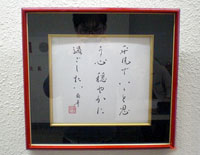 平凡でいいと思
う心穏やかに
過ごしたい